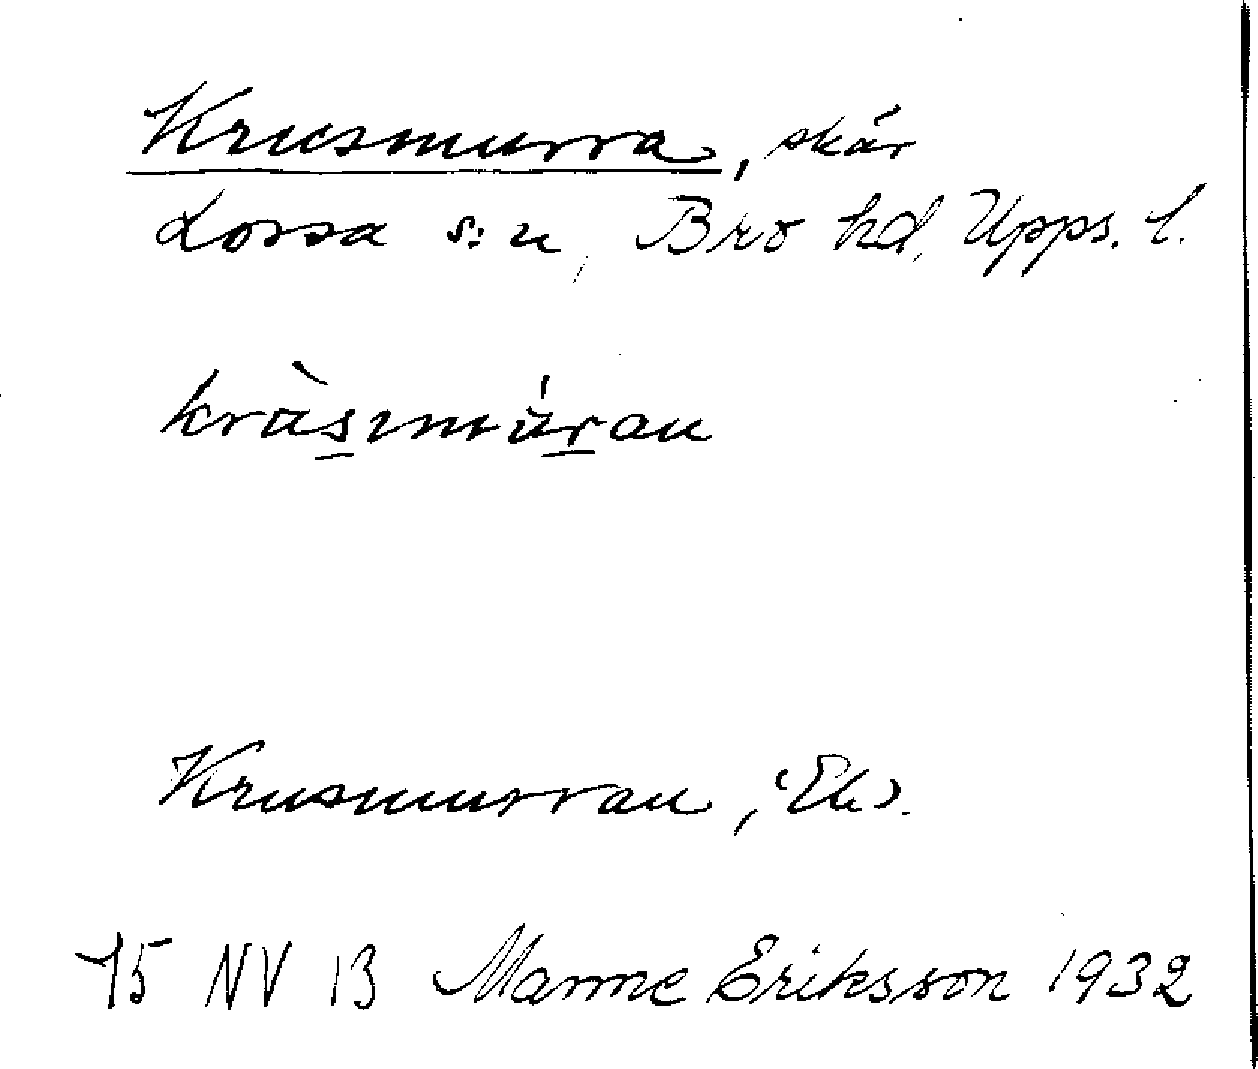 Krusmurra, skär
Lossa s:n, Bro hd, Upps. l.
krùsmúran
Krusmurran, Ek.
75 NV 13 Manne Eriksson 1932